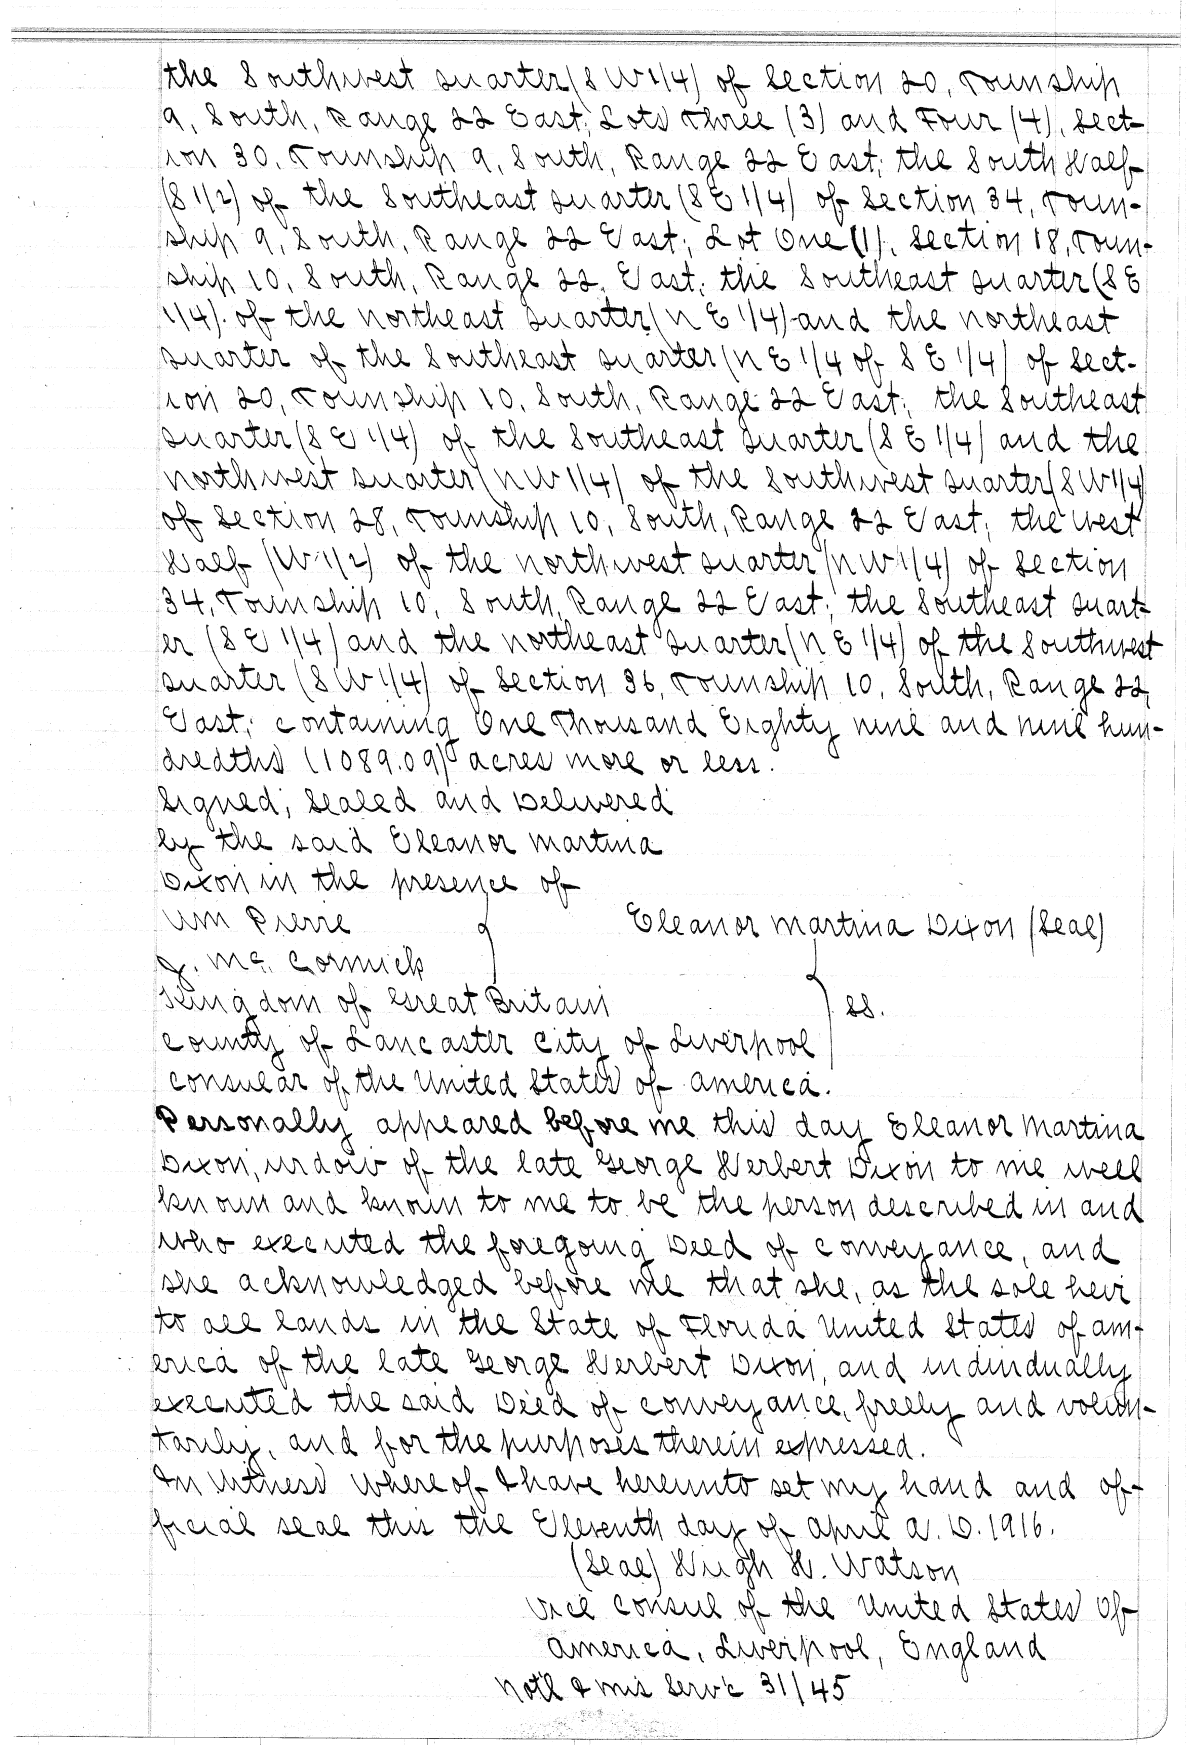 the Southwest quarter (S W 1/4) of Section 20, Township
9, South, Range 22 East; Lots Three (3) and Four (4), Sect-
ion 30, Township 9, South, Range 22 East; the South Half
(S 1/2) of the Southeast quarter (S E 1/4) of Section 34, Town-
ship 9, South, Range 22 East; Lot One (1), Section 18, Town-
ship 10, South, Range 22, East; the Southeast quarter (S E
1/4) of the northeast quarter (N E 1/4) and the northeast
quarter of the Southeast quarter (N E 1/4 of S E 1/4) of Sect-
ion 20, Township 10, South, Range 22 East; the Southeast
quarter (S E 1/4) of the Southeast quarter (S E 1/4) and the
northwest quarter (N W 1/4) of the Southwest quarter (S W 1/4
of Section 28, Township 10, South, Range 22 East; the West
Half (W 1/2) of the northwest quarter (N W 1/4) of Section
34, Township 10, South, Range 22 East; the Southeast quart-
er (S E 1/4) and the northeast quarter (N E 1/4) of the Southwest
quarter (S W 1/4) of Section 36, Township 10, South, Range 22,
East; containing One Thousand Eighty nine and nine hun-
dredths (1089.09) acres more or less.
Signed, Sealed and Delivered
by the said Eleanor Martina
Dixon in the presence of
Wm Pierre Eleanor Martina Dixon (Seal)
J. Mc. Cormick
Kingdom of Great Britain
County of Lancaster City of Liverpool ss.
Consular of the United States of America.
Personally appeared before me this day Eleanor Martina
Dixon, widow of the late George Herbert Dixon to me well
known and known to me to be the person described in and
who executed the foregoing Deed of conveyance, and
she acknowledged before me that she, as the sole heir
to all lands in the State of Florida United States of Am-
erica of the late George Herbert Dixon, and individually
executed the said Deed of conveyance, freely and volun-
tarily, and for the purposes therein expressed.
In Witness Whereof I have hereunto set my hand and of-
ficial seal this the Eleventh day of April A. D. 1916.
(Seal) Hugh H. Watson
Vice Consul of the United States of
America, Liverpool, England
Not'l & mis Serv'c 31/45